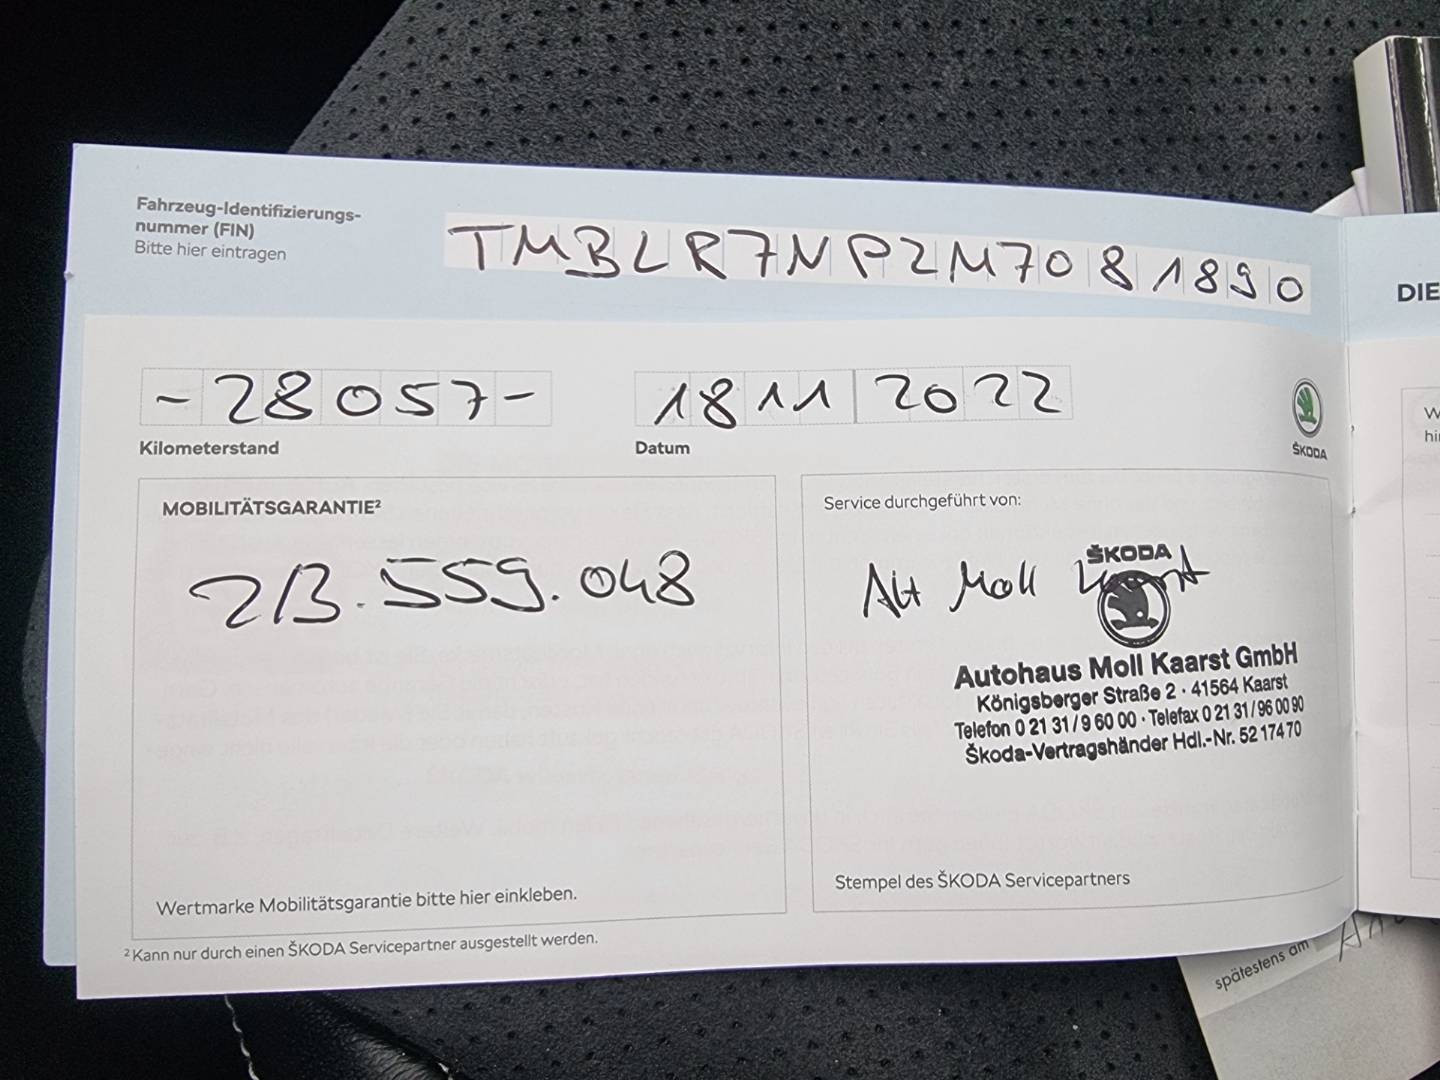 Fahrzeug-Identifizierungs-
nummer (FIN)
Bitte hier eintragen
TMBLR7NP2M7081890
-28057-
Kilometerstand
1811 2022
Datum
ŠKODA
MOBILITÄTSGARANTIE²
213.559.048
Wertmarke Mobilitätsgarantie bitte hier einkleben.
Service durchgeführt von:
AH Moll Kaarst
ŠKODA
Autohaus Moll Kaarst GmbH
Königsberger Straße 2 · 41564 Kaarst
Telefon 0 21 31 / 9 60 00 · Telefax 0 21 31 / 96 00 90
Škoda-Vertragshänder Hdl.-Nr. 52 174 70
Stempel des ŠKODA Servicepartners
² Kann nur durch einen ŠKODA Servicepartner ausgestellt werden.
DIE
spätestens am